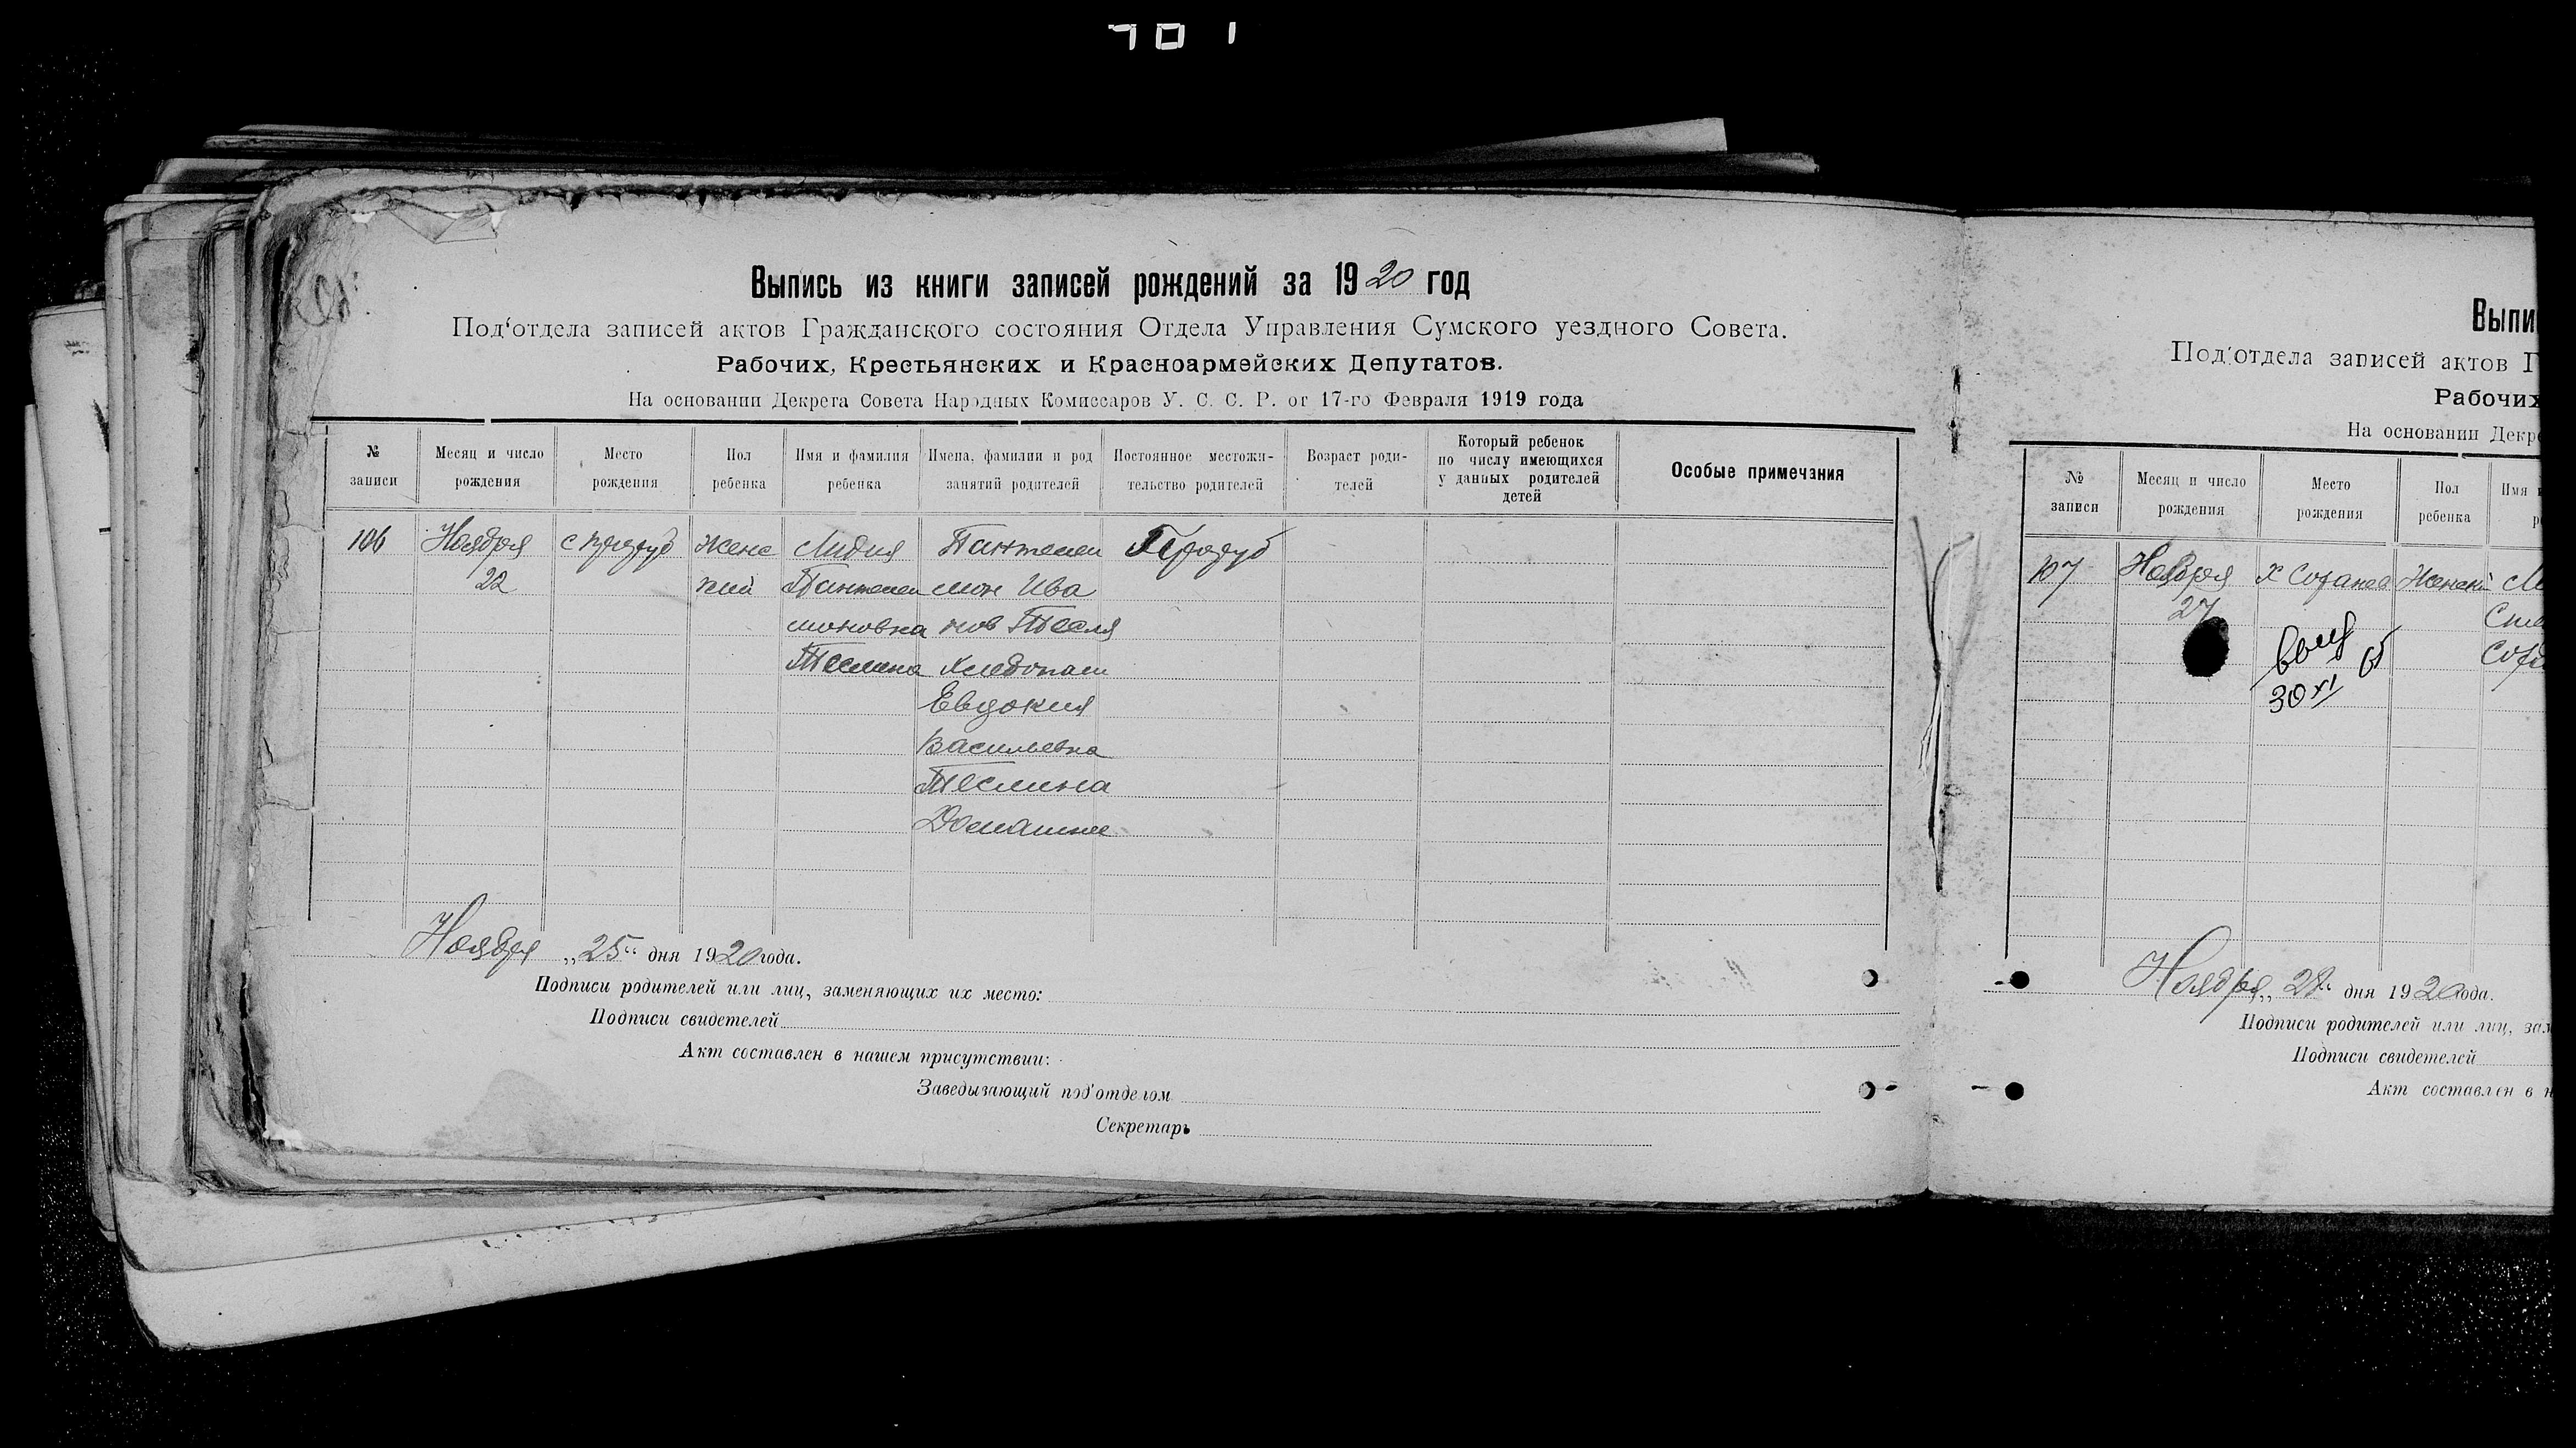 701
Выпись из книги записей рождений за 1920 год
Под‘отдела записей актов Гражданского состояния Отдела Управления Сумского уездного Совета.
Рабочих, Крестьянских и Красноармейских Депутатов.
На основании Декрета Совета Народных Комиссаров У. С. С. Р. от 17-го Февраля 1919 года
№ записи
Месяц и число рождения
Место рождения
Пол ребенка
Имя и фамилия ребенка
Имена, фамилии и род занятий родителей
Постоянное местожительство родителей
Возраст родителей
Который ребенок по числу имеющихся у данных родителей детей
Особые примечания
106
Ноября
22
с
Женс
кий
Лидия
Пантелей
моновна
Теслина
Пантелей
мон Ива
нов Тесля
Хлебопаш
Евдокия
Васильевна
Теслина
Домашнее
Ноября „25“ дня 1920 года.
Подписи родителей или лиц, заменяющих их место:
Подписи свидетелей
Акт составлен в нашем присутствии:
Заведывающий под‘отделом
Секретарь
Выпи
Под‘отдела записей актов Г
Рабочих
На основании Декре
№ записи
Месяц и число рождения
Место рождения
Пол ребенка
Имя и
107
Ноября
27
Х
Женский
30 XI
Ноября „28“ дня 1920 года.
Подписи родителей или лиц, зам
Подписи свидетелей
Акт составлен в н